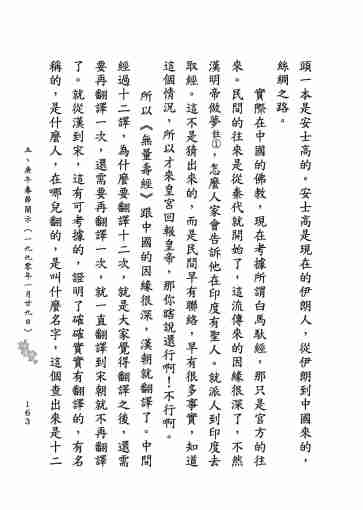 頭一本是安士高的。安士高是現在的伊朗人，從伊朗到中國來的，
絲綢之路。
實際在中國的佛教，現在考據所謂白馬馱經，那只是官方的往
來。民間的往來是從秦代就開始了，這流傳來的因緣很深了，不然
漢明帝做夢註①，怎麼人家會告訴他在印度有聖人。就派人到印度去
取經。這不是猜出來的，而是民間早有聯絡，早有很多事實，知道
這個情況，所以才來皇宮回報皇帝，那你瞎說還行啊！不行啊。
所以《無量壽經》跟中國的因緣很深，漢朝就翻譯了。中間
經過十二譯，為什麼要翻譯十二次，就是大家覺得翻譯之後，還需
要再翻譯一次，還需要再翻譯一次，就一直翻譯到宋朝就不再翻譯
了。就從漢到宋，這有可考據的，證明了確確實實有翻譯的，有名
稱的，是什麼人，在哪兒翻的，是叫什麼名字，這個查出來是十二
五、庚午春節開示（一九九零年一月廿九日）
163